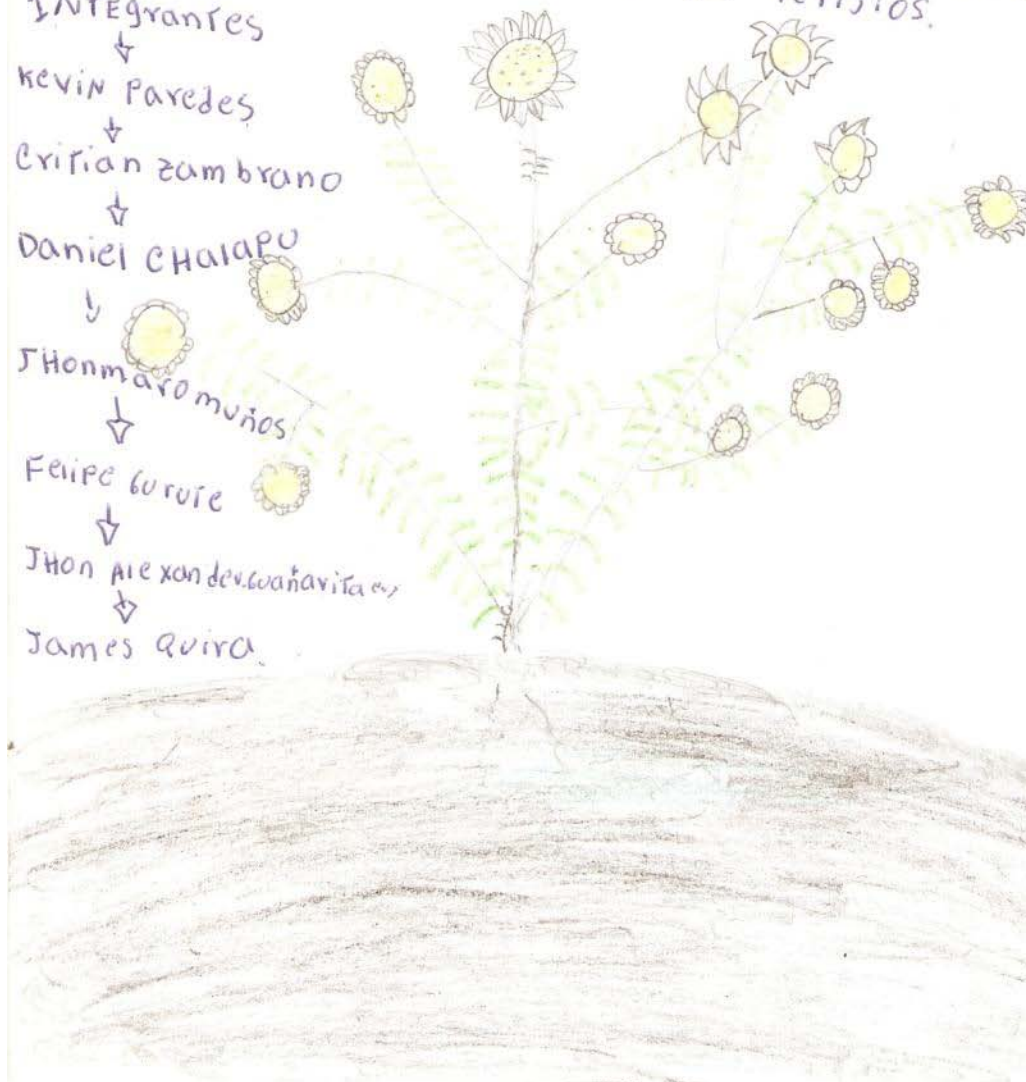 INTEgrantes
KeviN Paredes
Critian zambrano
Daniel CHalapu
JHonmaromuños
Felipe
JHon Alexander
James Quira.